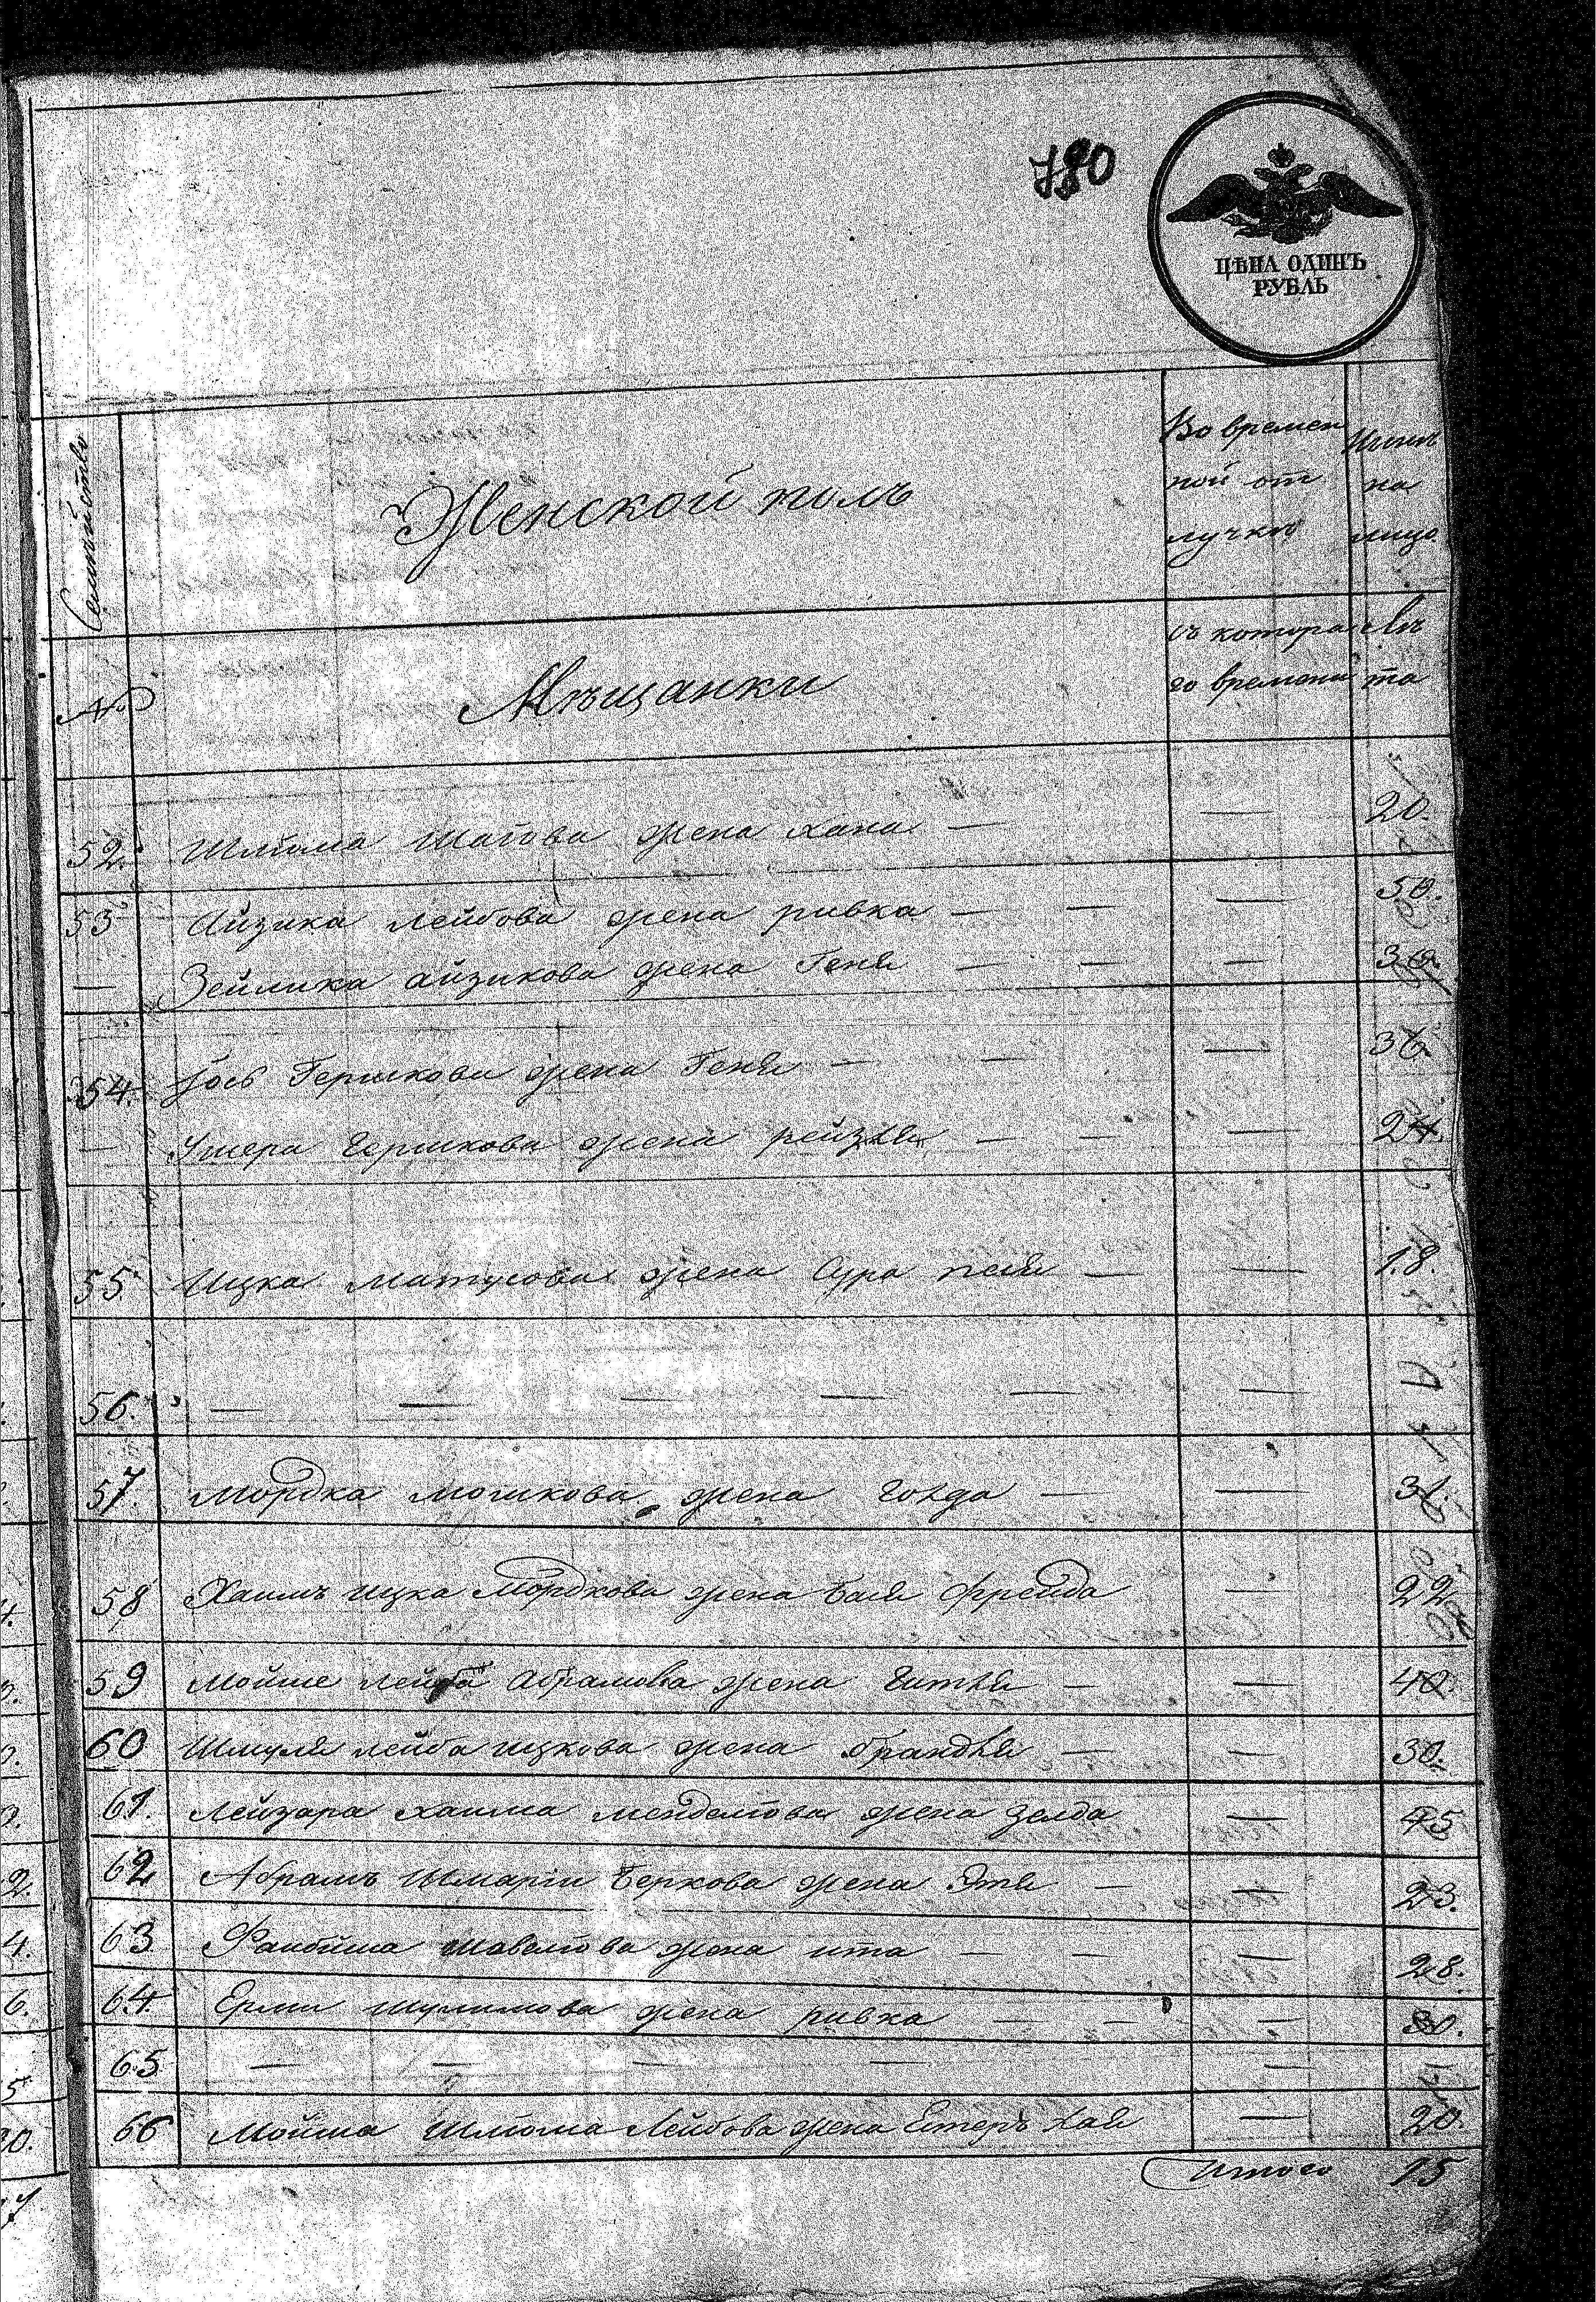 780
ЦѢНА ОДИНЪ
РУБЛЬ
Семѣйство
Женской полъ
Во времен
ной от
лучкѣ
на
лицо
№
Мѣщанки
съ котора
го времени
лѣ
та
52. Шліома жена Хана — — 20.
53 Айзика лейбова жена ривка — — — 50.
— Зейлика айзикова жена Геня — — — 30.
54. Іось Гершкова жена Геня — — — 36
— Ушера Гершкова жена рейзля — — — 24.
55 Ицка матусова жена Сура песя — — 18.
56. — — — — — —
57. Мордка мошкова жена голда — — 31.
58 Хаимъ ицка Мордкова жена бася фрейда — 22
59 Мойше лейба абрамова жена гитля — — 40
60 Шмуля лейба ицкова жена брандля — — 30.
61. Лейзара хаима менделіова жена зелда — 45
62 Абрамъ Шмаріи беркова жена Этя — — 23.
63 Файбиша жена ита — — — 28.
64 Ерми шулимова жена ривка — — — 30.
65 — — — — —
66 Мойша Шліома Лейбова жена Естеръ хая — 20.
Итого 15